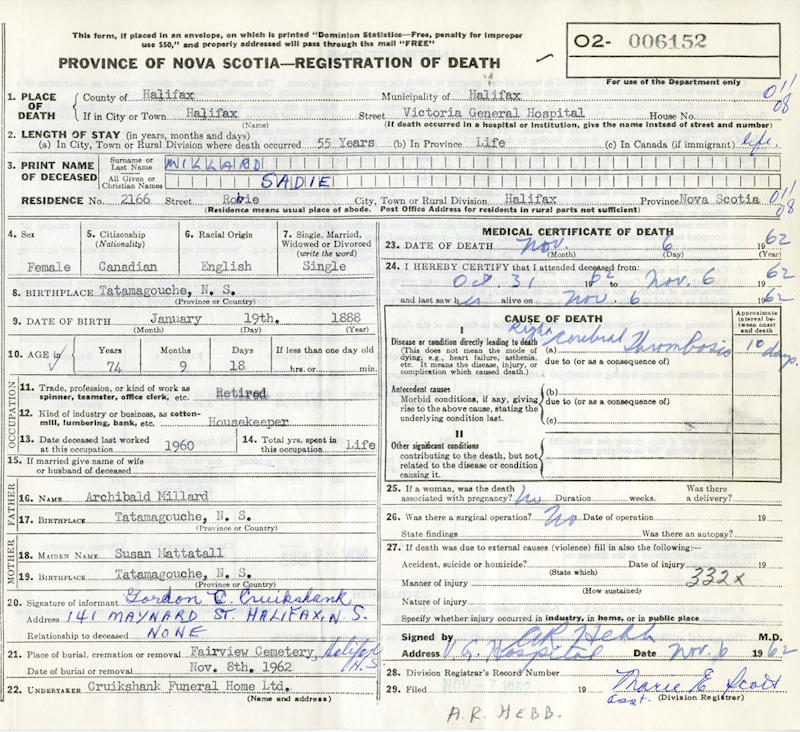 This form, if placed in an envelope, on which is printed "Dominion Statistics—Free, penalty for improper
use $50," and properly addressed will pass through the mail "FREE"
PROVINCE OF NOVA SCOTIA—REGISTRATION OF DEATH
O2- 006152
For use of the Department only
1. PLACE OF DEATH County of Halifax Municipality of Halifax 011
If in City or Town Halifax Street Victoria General Hospital House No. 08
(Name) (If death occurred in a hospital or institution, give the name instead of street and number)
2. LENGTH OF STAY (in years, months and days)
(a) In City, Town or Rural Division where death occurred 55 Years (b) In Province Life (c) In Canada (if immigrant) life.
3. PRINT NAME OF DECEASED Surname or Last Name MILLARD
All Given or Christian Names SADIE
RESIDENCE No. 2166 Street Robie City, Town or Rural Division Halifax Province Nova Scotia 011
(Residence means usual place of abode. Post Office Address for residents in rural parts not sufficient) 08
4. Sex 5. Citizenship (Nationality) 6. Racial Origin 7. Single, Married, Widowed or Divorced (write the word)
Female Canadian English Single
8. BIRTHPLACE Tatamagouche, N. S.
(Province or Country)
9. DATE OF BIRTH January 19th. 1888
(Month) (Day) (Year)
10. AGE in Years Months Days If less than one day old
74 9 18 hrs. or min.
OCCUPATION
11. Trade, profession, or kind of work as
spinner, teamster, office clerk, etc. Retired
12. Kind of industry or business, as cotton-
mill, lumbering, bank, etc. Housekeeper
13. Date deceased last worked at this occupation 1960 14. Total yrs. spent in this occupation Life
15. If married give name of wife
or husband of deceased
FATHER
16. NAME Archibald Millard
17. BIRTHPLACE Tatamagouche, N. S.
(Province or Country)
MOTHER
18. MAIDEN NAME Susan Mattatall
19. BIRTHPLACE Tatamagouche, N. S.
(Province or Country)
20. Signature of informant Gordon C. Cruikshank
Address 141 MAYNARD ST. HALIFAX, N. S.
Relationship to deceased NONE
21. Place of burial, cremation or removal Fairview Cemetery, Halifax N.S.
Date of burial or removal Nov. 8th. 1962
22. UNDERTAKER Cruikshank Funeral Home Ltd.
(Name and address)
MEDICAL CERTIFICATE OF DEATH
23. DATE OF DEATH Nov. 6 1962
(Month) (Day) (Year)
24. I HEREBY CERTIFY that I attended deceased from:
Oct. 31 1962 to Nov. 6 1962
and last saw her alive on Nov. 6 1962
CAUSE OF DEATH Approximate interval between onset and death
I
Disease or condition directly leading to death (a) Right Cerebral Thrombosis 10 days.
(This does not mean the mode of dying, e.g., heart failure, asthenia, etc. It means the disease, injury, or complication which caused death.) due to (or as a consequence of)
Antecedent causes (b)
Morbid conditions, if any, giving rise to the above cause, stating the underlying condition last. due to (or as a consequence of)
(c)
II
Other significant conditions
contributing to the death, but not
related to the disease or condition
causing it.
25. If a woman, was the death associated with pregnancy? No Duration weeks. Was there a delivery?
26. Was there a surgical operation? No Date of operation 19
State findings Was there an autopsy?
27. If death was due to external causes (violence) fill in also the following:—
Accident, suicide or homicide? Date of injury 19
(State which)
Manner of injury 332x
(How sustained)
Nature of injury
Specify whether injury occurred in industry, in home, or in public place
Signed by A R Hebb M.D.
Address V. G. Hospital Date Nov 6 1962
28. Division Registrar's Record Number
29. Filed NOV - 7 1962 19 Marie E. Scott
Asst. (Division Registrar)
A.R. HEBB.